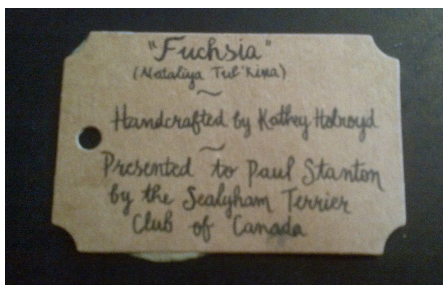 "Fuchsia"
(Nataliya Tul'Kina)
~
Handcrafted by Kathey Holroyd
~
Presented to Paul Stanton
by the Sealyham Terrier
Club of Canada